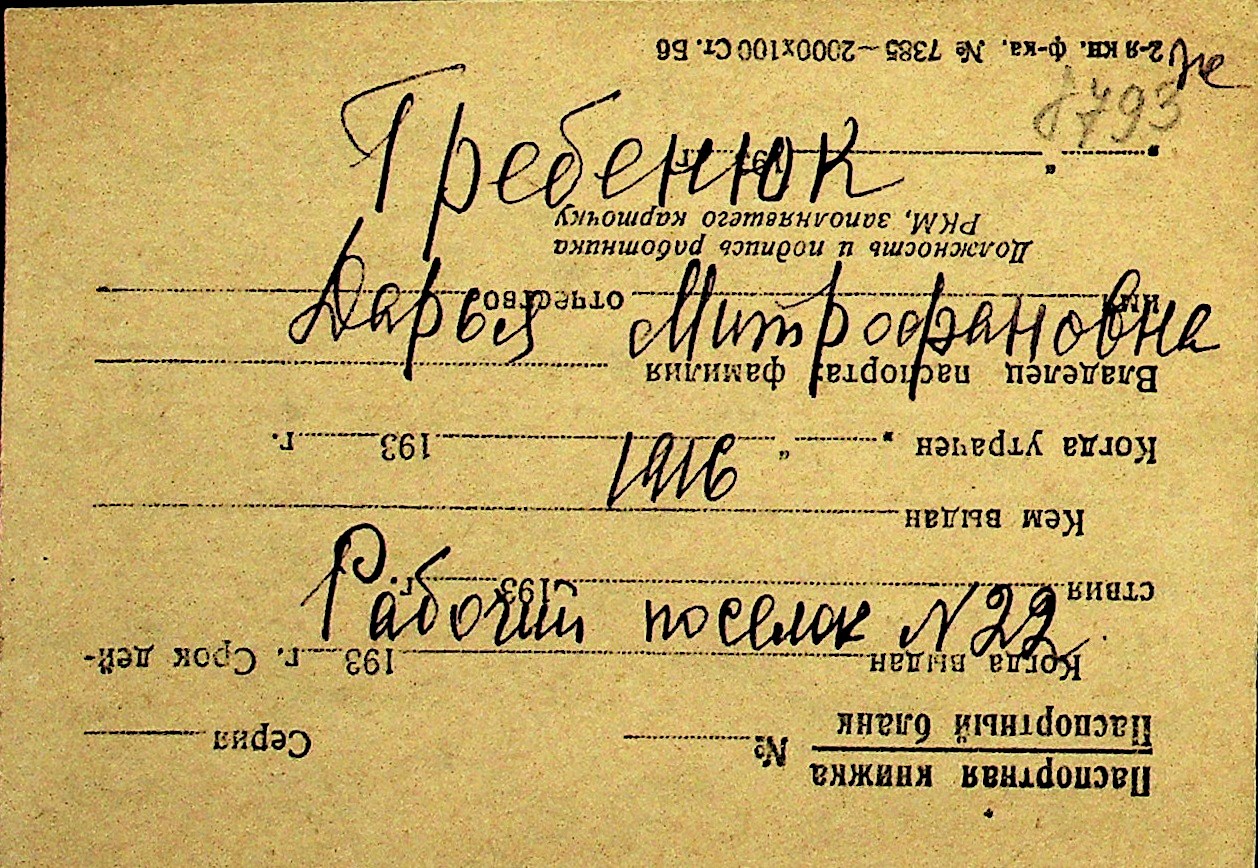 Гребенюк
Дарья Митрофановна
1916
Рабочий поселок N 22.
793
Паспортная книжка
Паспортный бланк
№ Серия
Когда выдан 193 г. Срок дей-
ствия 193 г.
Кем выдан
Когда утрачен „ “ 193 г.
Владелец паспорта: фамилия
имя отчество
Должность и подпись работника
РКМ, заполнявшего карточку
„ “ 193 г.
2-я кн. ф-ка. № 7385—2000х100 Ст. Бб